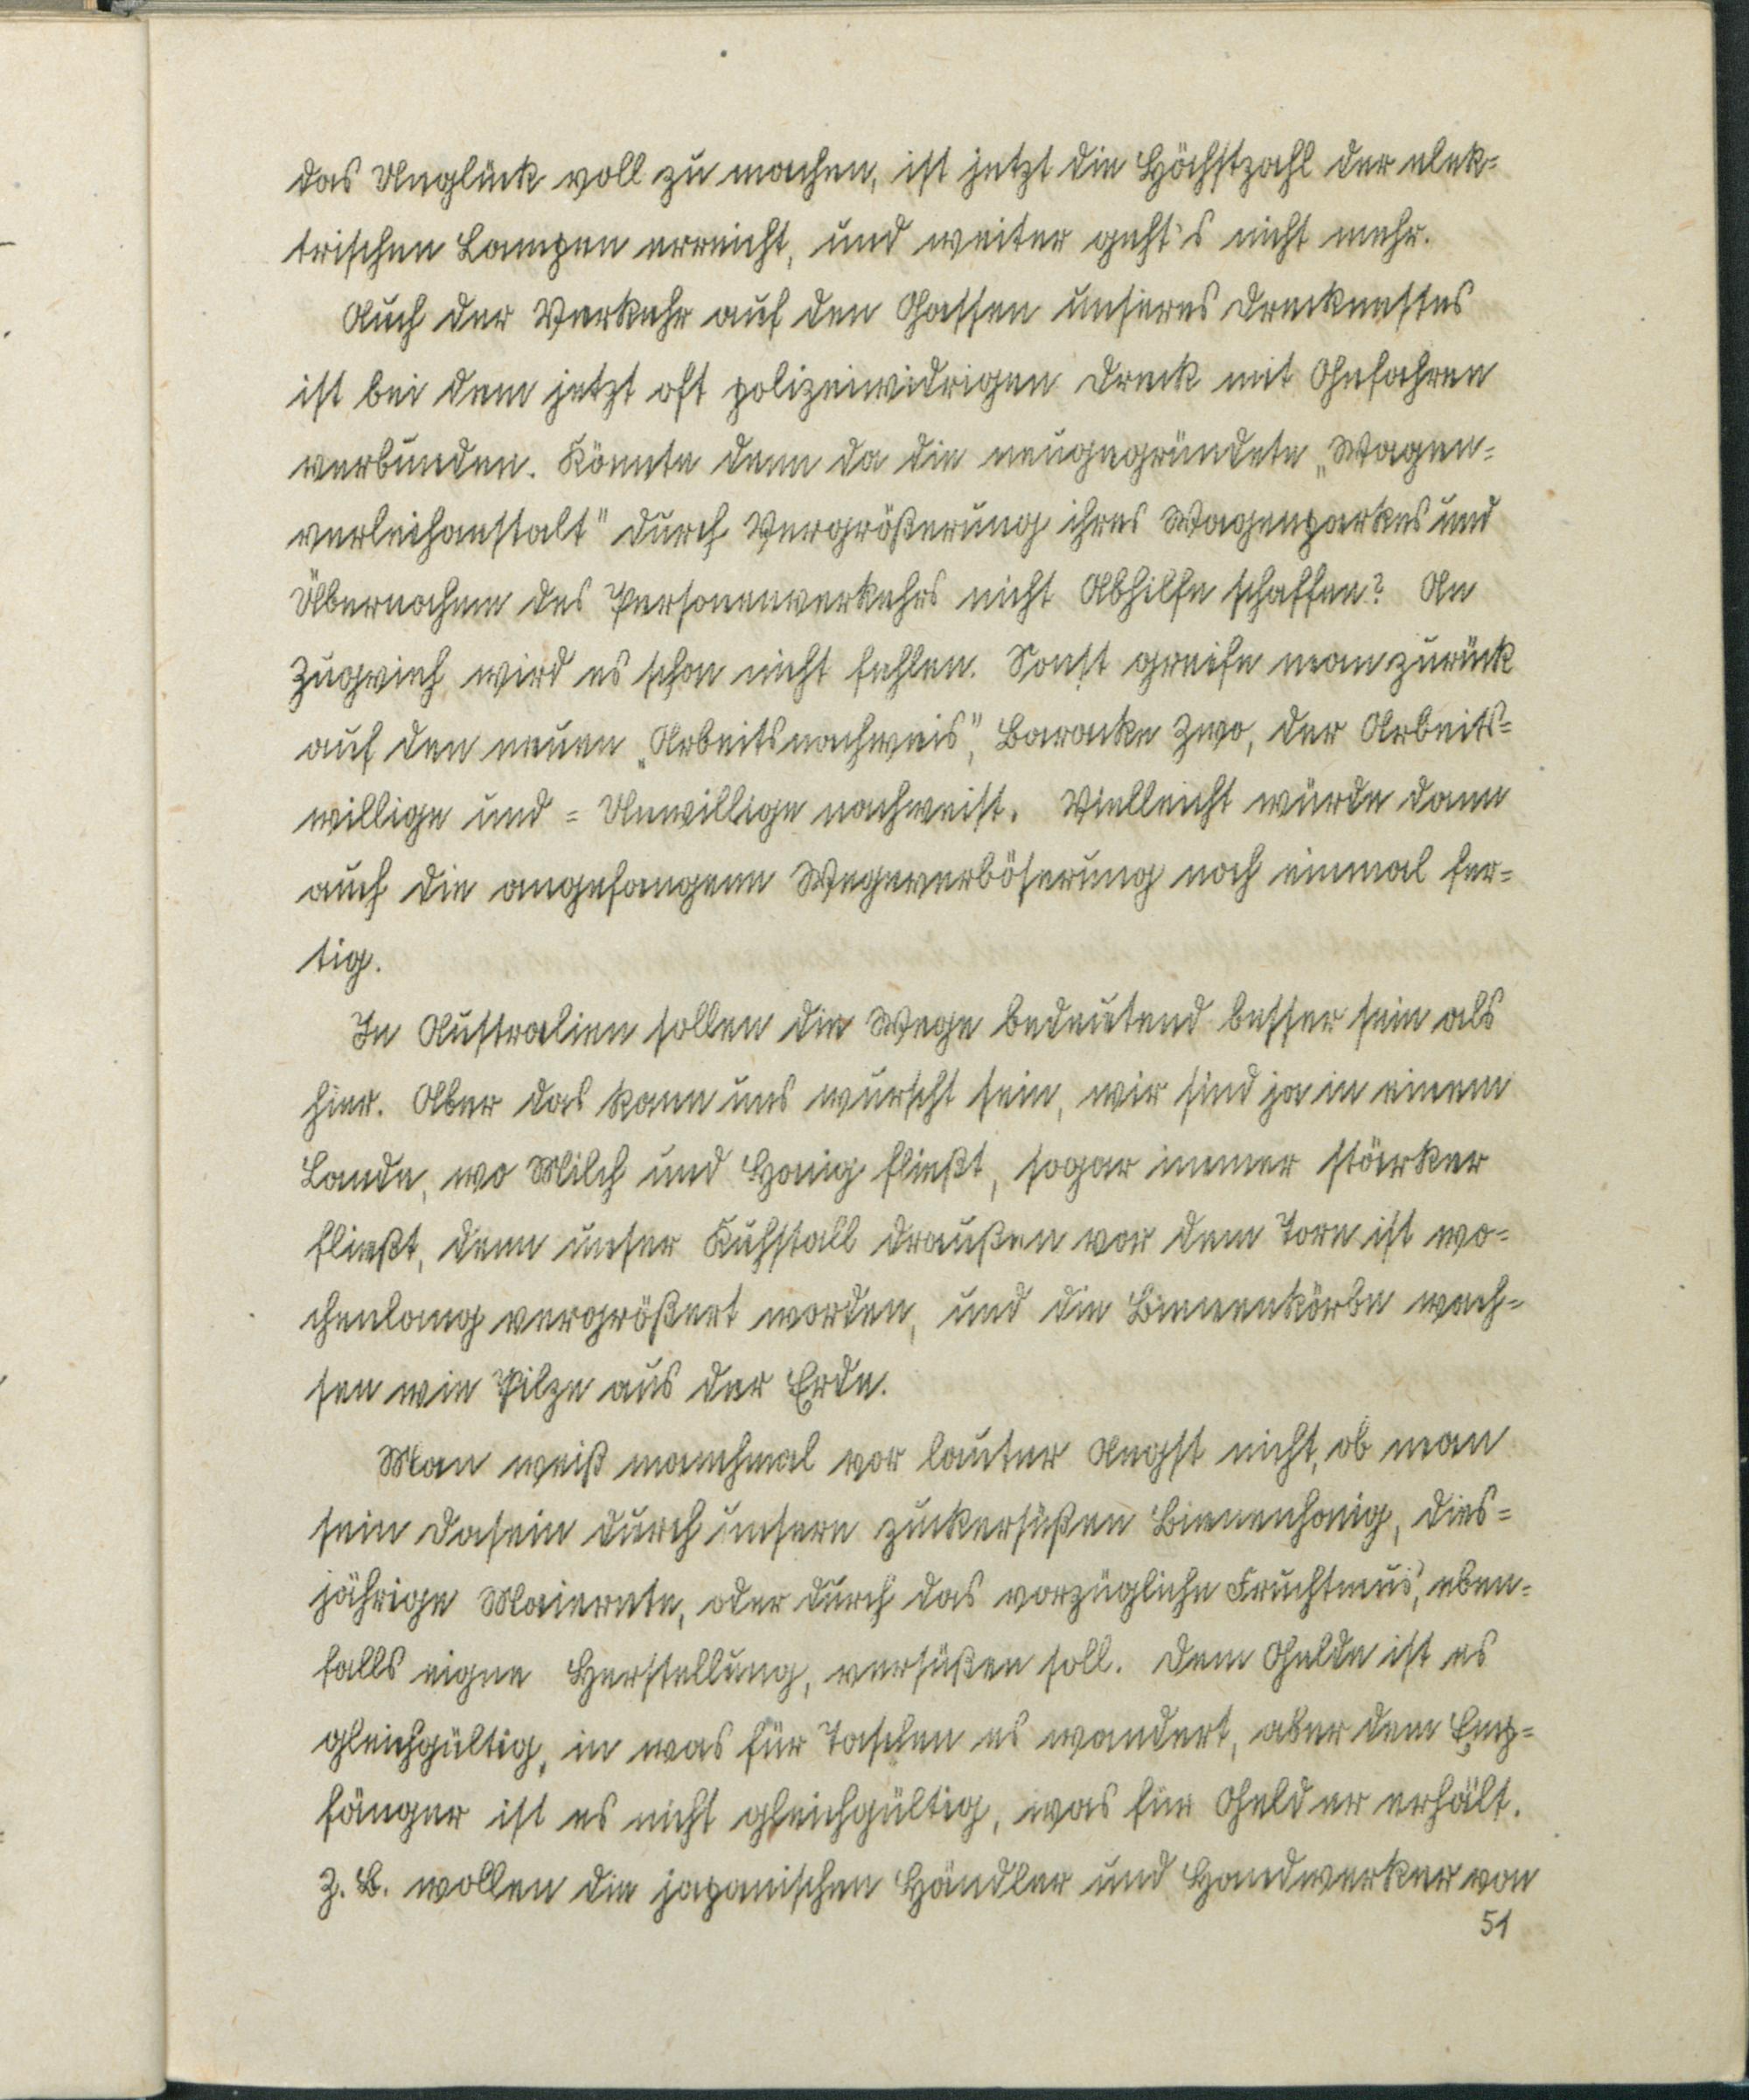 das Unglück voll zu machen, ist jetzt die Höchstzahl der elek=
trischen Lampen erreicht, und weiter geht's nicht mehr.
Auch der Verkehr auf den Gassen unseres Drecknestes
ist bei dem jetzt oft polizeiwidrigen Dreck mit Gefahren
verbunden. Könnte denn da die neugegründete „Wagen=
verleihanstalt" durch Vergrößerung ihres Wagenparkes und
Übernachme des Personenverkehrs nicht Abhilfe schaffen? An
Zugvieh wird es schon nicht fehlen. Sonst greife man zurück
auf den neuen „Arbeitsnachweis", Baracke Zwo, der Arbeits=
willige und = Unwillige nachweist. Vielleicht würde dann
auch die angefangene Wegeverböserung noch einmal fer=
tig.
In Australien sollen die Wege bedeutend besser sein als
hier. Aber das kann uns wurscht sein, wir sind ja in einem
Lande, wo Milch und Honig fließt, sogar immer stärker
fließt, denn unser Kuhstall draußen vor dem Tore ist wo=
chenlang vergrößert worden, und die Bienenkörbe wach=
sen wie Pilze aus der Erde.
Man weiß manchmal vor lauter Angst nicht, ob man
sein Dasein durch unsern zuckersüßen Bienenhonig, dies=
jährige Maiernte, oder durch das vorzügliche Fruchtmus, eben=
falls eigne Herstellung, versüßen soll. Dem Gelde ist es
gleichgültig, in was für Taschen es wandert, aber dem Emp=
fänger ist es nicht gleichgültig, was für Geld er erhält.
Z. B. wollen die japanischen Händler und Handwerker von
51